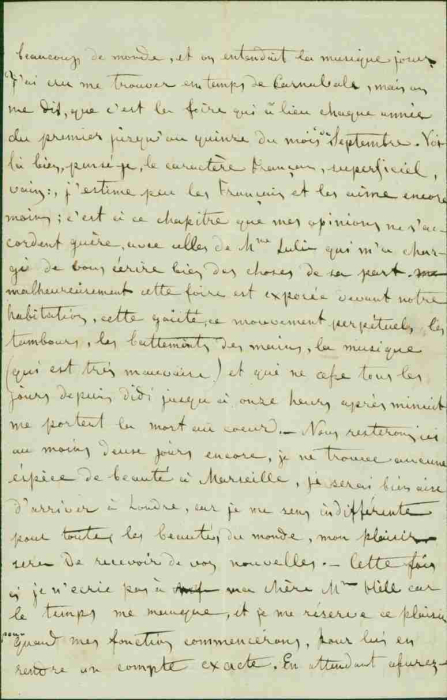 beaucoup de monde, et on entendait la musique jouer
J'ai cru me trouver en temps de Carnavale, mais on
me dit, que c'est la foire qui à lieu chaque année
du premier jusqu'au quinze du mois de Septembre. Voi-
là bien, pensai-je, le caractère français, superficiel,
vain:, j'estime peu les Français et les aime encore
moins; c'est à ce chapitre que mes opinions ne s'ac-
cordent guère, avec celles de Mme Lulin qui m'a char-
gé de vous écrire bien des choses de sa part.
malheureusement cette foire est exposée devant notre
habitation, cette gaieté, ce mouvement perpétuels, les
tambours, les battements des mains, la musique
(qui est très mauvaise) et qui ne cesse tous les
jours depuis didi jusqu'à onze heurs après minuit
me portent la mort au coeur. – Nous resterons ici
au moins deuse jours encore, je ne trouve aucune
éspèce de beauté à Marseille, je serai bien aise
d'arriver à Londre, car je me sens indifférente
pour toutes les beautés du monde, mon plaisir
sera de recevoir de vos nouvelles. – Cette fois
ci je n'ecrie pas à ma chère Mme car
le temps me manque, et je me réserve ce plaisir
quand mes fonctions commencerons, pour lui en
rendre un compte exacte. En attendant